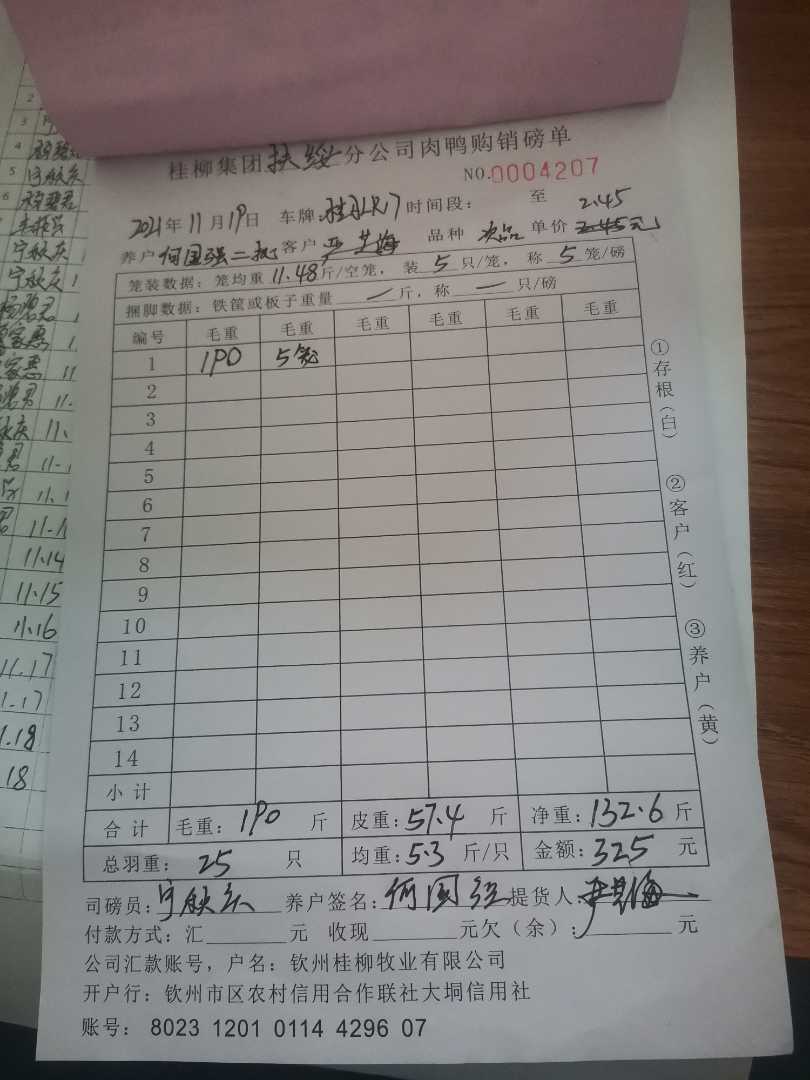 桂柳集团扶绥分公司肉鸭购销磅单
NO.0004207
2021年11月19日 车牌: 时间段: 至 2.45
养户何国强二批客户 品种 次品 单价 2.45元
笼装数据: 笼均重11.48斤/空笼, 装5只/笼, 称5笼/磅
捆脚数据: 铁筐或板子重量 — 斤, 称 — 只/磅
编号 毛重 毛重 毛重 毛重 毛重 毛重
1 190 5笼
2
3
4
5
6
7
8
9
10
11
12
13
14
小计
合计 毛重: 190 斤 皮重: 57.4 斤 净重: 132.6 斤
总羽重: 25 只 均重: 5.3 斤/只 金额: 325 元
司磅员: 宁欣庆 养户签名: 何国强 提货人:
付款方式: 汇 元 收现 元欠(余): 元
公司汇款账号, 户名: 钦州桂柳牧业有限公司
开户行: 钦州市区农村信用合作联社大垌信用社
账号: 8023 1201 0114 4296 07
①存根(白)
②客户(红)
③养户(黄)
2
3
4
5
6
11.14
11.15
11.16
11.17
1.17
1.18
18